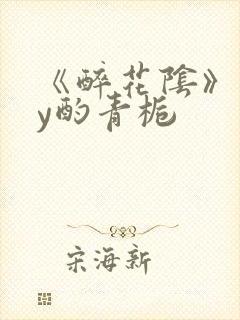 《醉花陰》
y酌青栀
宋海新